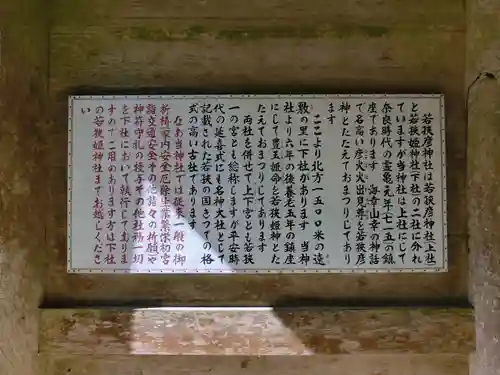 若狭彦神社は若狭彦神社(上社)
と若狭姫神社(下社)の二社に分れ
ていますが当神社は上社にして
奈良時代の霊亀元年(七一五)の鎮
座であります 海幸山幸の神話
で名高い彦火火出見尊を若狭彦
神とたたえておまつりしてあり
ます
ここより北方一五〇〇米の遠
敷の里に下社があります 当神
社より六年の後養老五年の鎮座
にして豊玉姫命を若狭姫神とた
たえておまつりしてあります
両社を併せて上下宮とも若狭
一の宮とも総称しますが平安時
代の延喜式にも名神大社として
記載された若狭の国きっての格
式の高い古社であります
なお当神社では従来一般の御
祈祷(家内安全厄除生業繁栄初宮
詣交通安全その他諸々の祈願)や
神符守札の授与その他社務一切
を下社において執行しておりま
すのでご用のあります方は下社
の若狭姫神社までお越しくださ
い